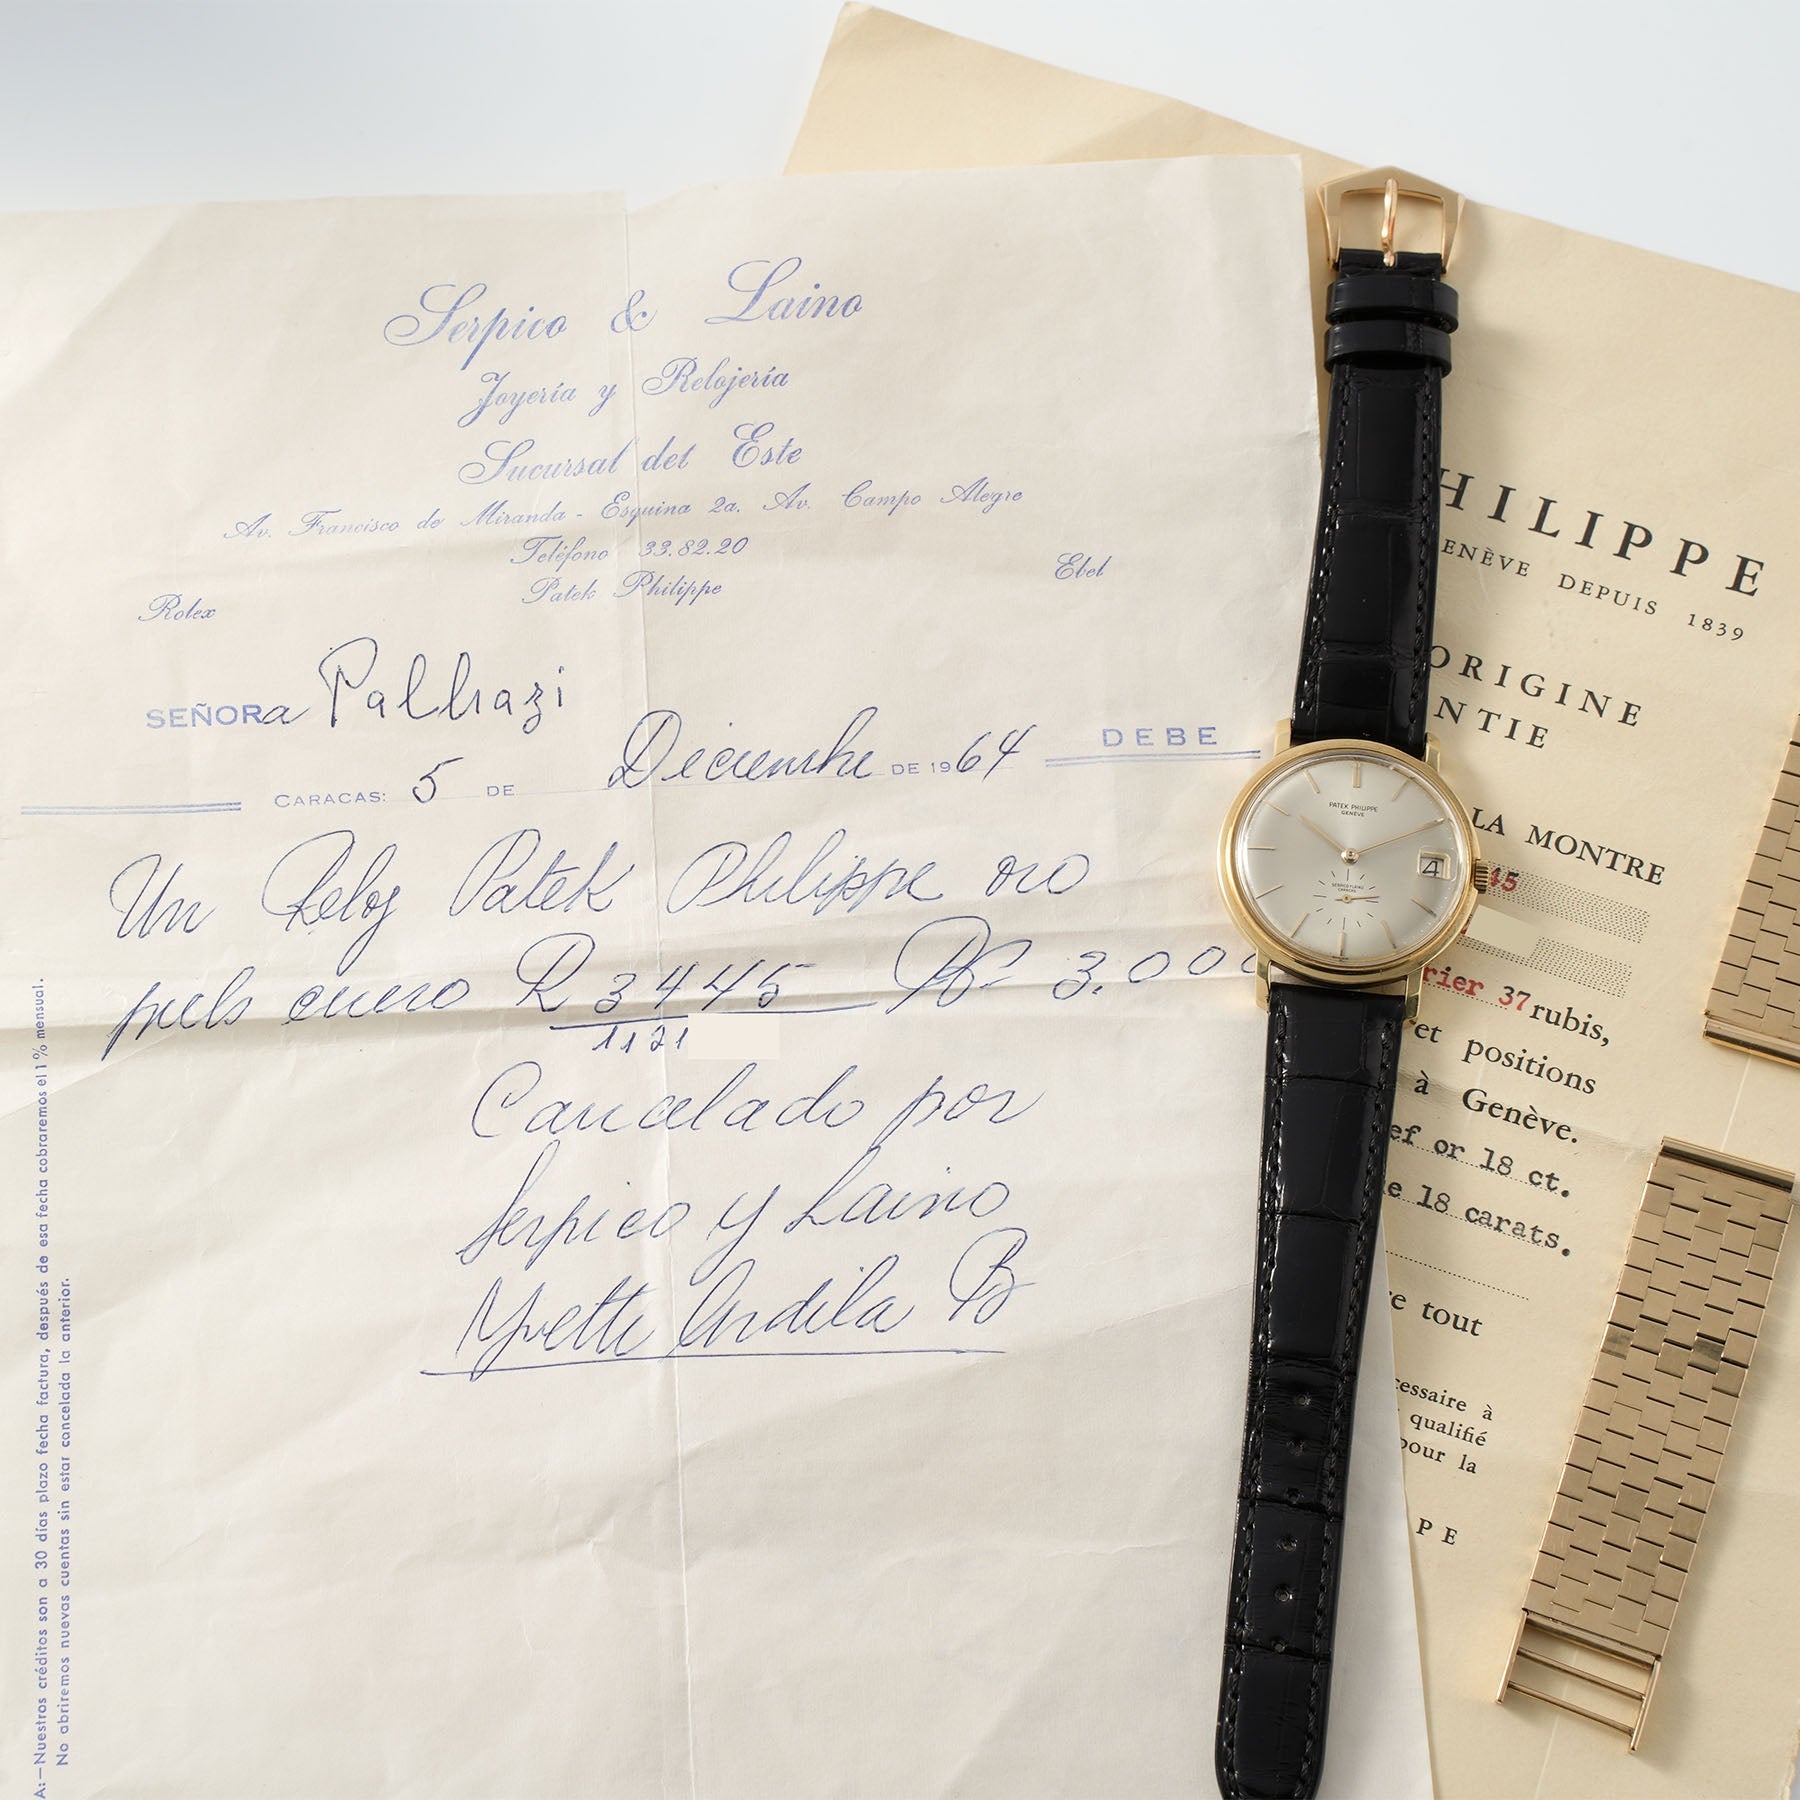 Serpico & Laino
Joyería y Relojería
Sucursal del Este
Av. Francisco de Miranda - Esquina 2a. Av. Campo Alegre
Teléfono 33.82.20
Rolex Patek Philippe Ebel
SEÑORa
CARACAS: 5 DE Diciembre DE 1964 DEBE
Un Reloj Patek Philippe oro
puls cuero R 3445 Bs 3.000
1121
Cancelado por
Serpico y Laino
Yvette B
A:—Nuestros créditos son a 30 días plazo fecha factura, después de esa fecha cobraremos el 1 % mensual.
No abriremos nuevas cuentas sin estar cancelada la anterior.
PATEK PHILIPPE
GENÈVE
4
SERPICO Y LAINO
CARACAS
HILIPPE
ENÈVE DEPUIS 1839
ORIGINE
NTIE
LA MONTRE
45
rier 37 rubis,
et positions
à Genève.
ef or 18 ct.
e 18 carats.
e tout
cessaire à
qualifié
pour la
PE